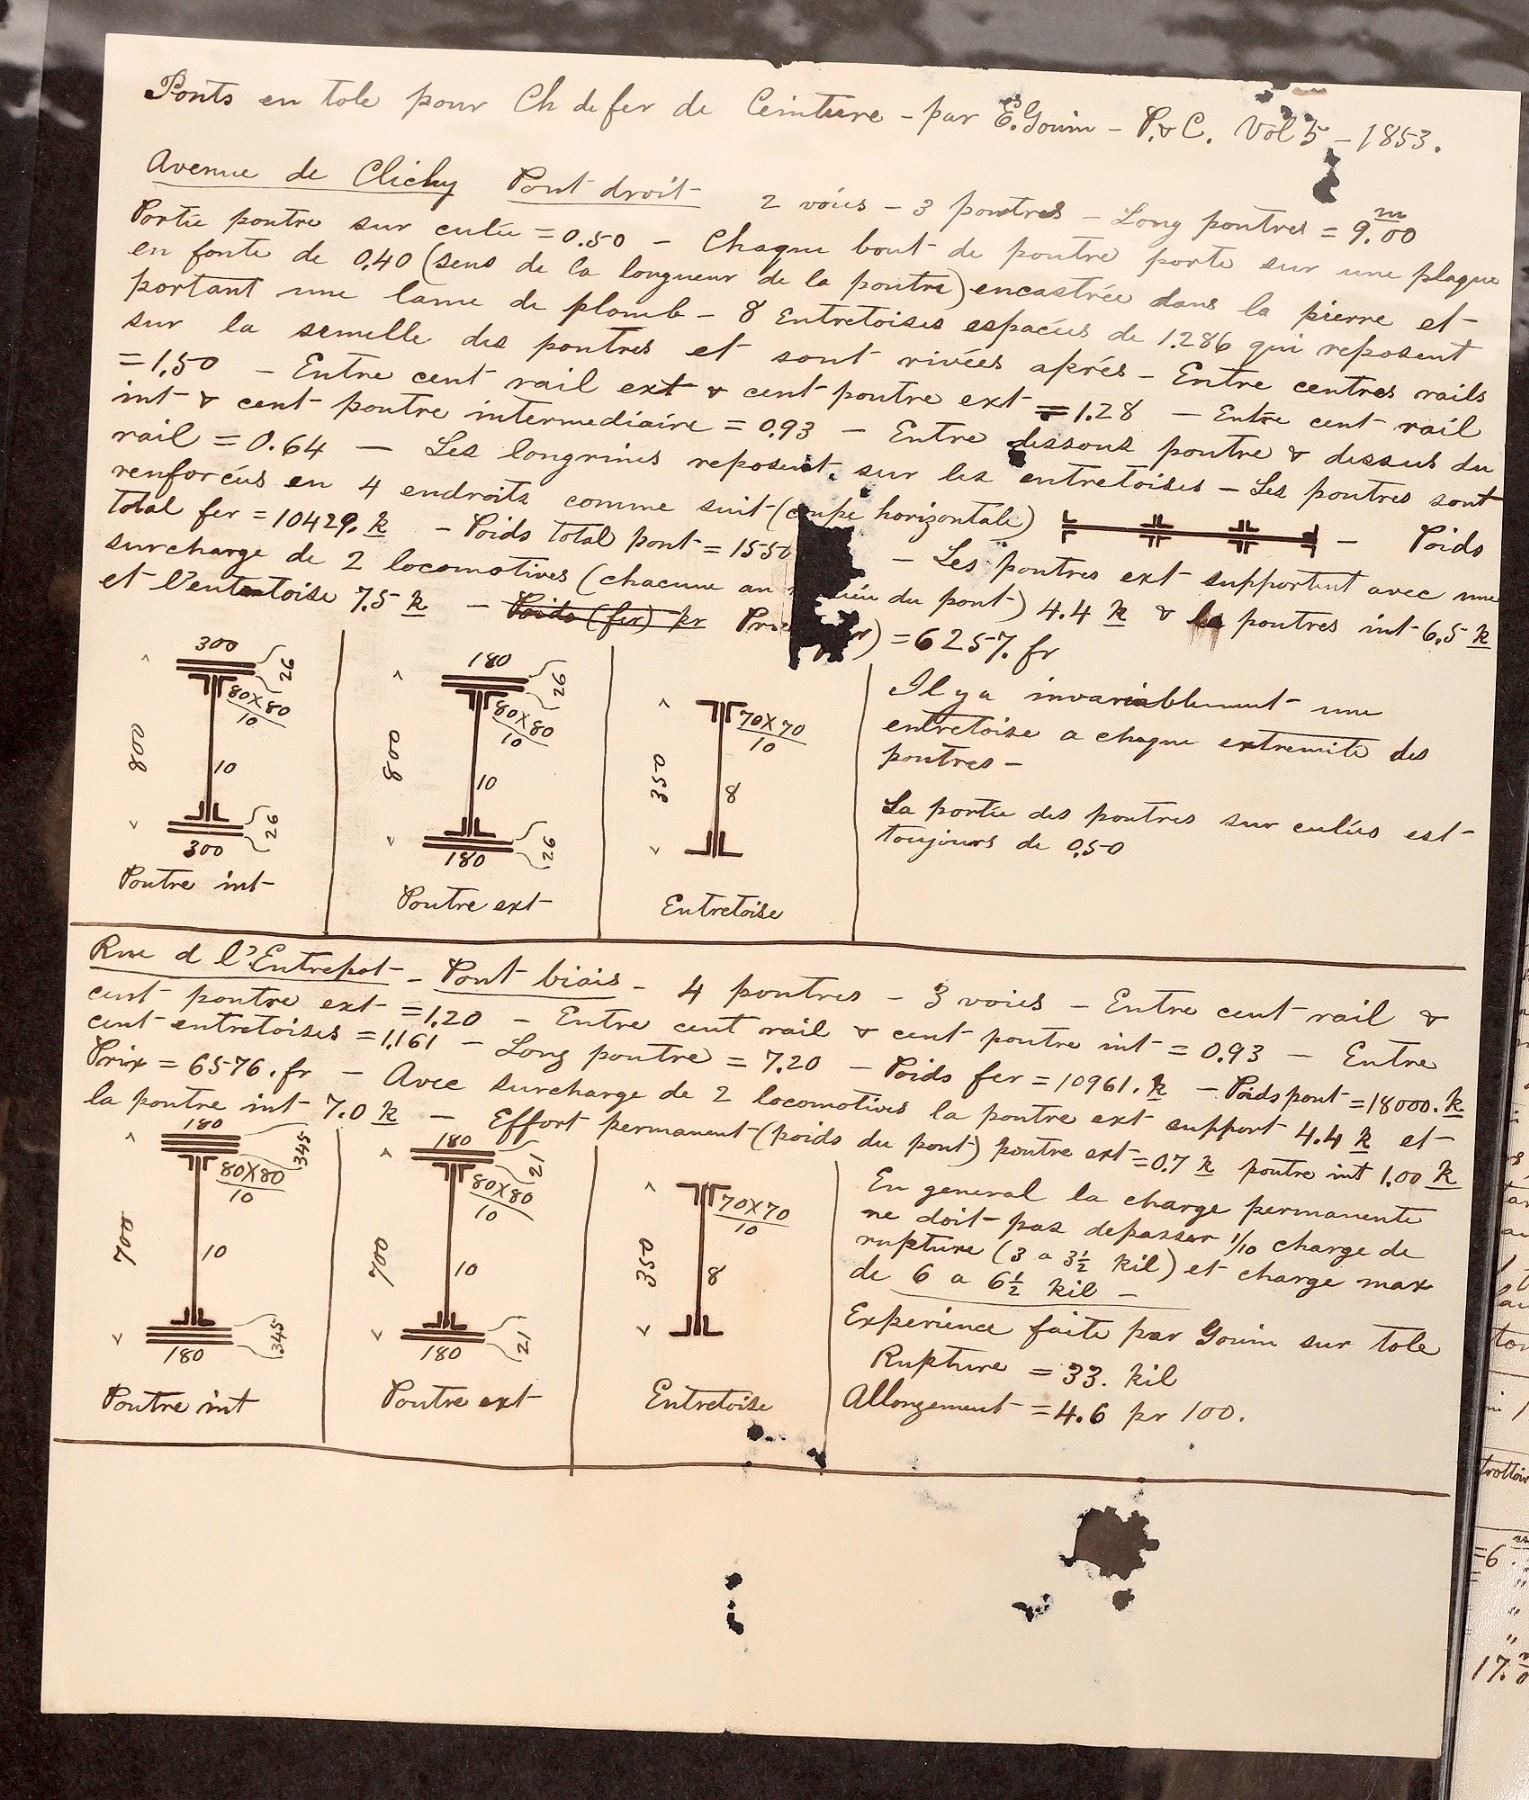 Ponts en tole pour Ch de fer de Ceinture - par E. Gouin - P. & C. Vol 5 - 1853.
Avenue de Clichy Pont droit 2 voies - 3 poutres - Long poutres = 9.00 m
Portée poutre sur culée = 0.50 - Chaque bout de poutre porte sur une plaque
en fonte de 0.40 (sens de la longueur de la poutre) encastrée dans la pierre et
portant une lame de plomb - 8 Entretoises espacées de 1.286 qui reposent
sur la semelle des poutres et sont rivées après - Entre centres rails
= 1.50 - Entre cent rail ext & cent poutre ext = 1.28 - Entre cent rail
int & cent poutre intermediaire = 0.93 - Entre dessous poutre & dessus du
rail = 0.64 - Les longrines reposent sur les entretoises - Les poutres sont
renforcées en 4 endroits comme suit (coupe horizontale) - Poids
total fer = 10429. k - Poids total pont = 155 - Les poutres ext supportent avec une
surcharge de 2 locomotives (chacune au milieu du pont) 4.4 k & les poutres int 6.5 k
et l'entretoise 7.5 k - Poids (fer) pr ) = 6257. fr
300
26
80X80
10
800
10
26
300
Poutre int
180
26
80X80
10
800
10
26
180
Poutre ext
70X70
10
350
8
Entretoise
Il y a invariablement une
entretoise a chaque extremite des
poutres -
La portée des poutres sur culées est
toujours de 0.50
Rue d l'Entrepot - Pont biais - 4 poutres - 3 voies - Entre cent rail &
cent poutre ext = 1.20 - Entre cent rail & cent poutre int = 0.93 - Entre
cent entretoises = 1.161 - Long poutre = 7.20 - Poids fer = 10961. k - Poids pont = 18000. k
Prix = 6576. fr - Avec surcharge de 2 locomotives la poutre ext support 4.4 k et
la poutre int 7.0 k - Effort permanent (poids du pont) poutre ext = 0.7 k poutre int 1.00 k
180
345
80X80
10
700
10
345
180
Poutre int
180
21
80X80
10
700
10
21
180
Poutre ext
70X70
10
350
8
Entretoise
En general la charge permanente
ne doit pas depasser 1/10 charge de
rupture (3 a 3½ kil) et charge max
de 6 a 6½ kil -
Experience faite par Gouin sur tole
Rupture = 33. kil
Allongement = 4.6 pr 100.
trottoir
=6.
17.